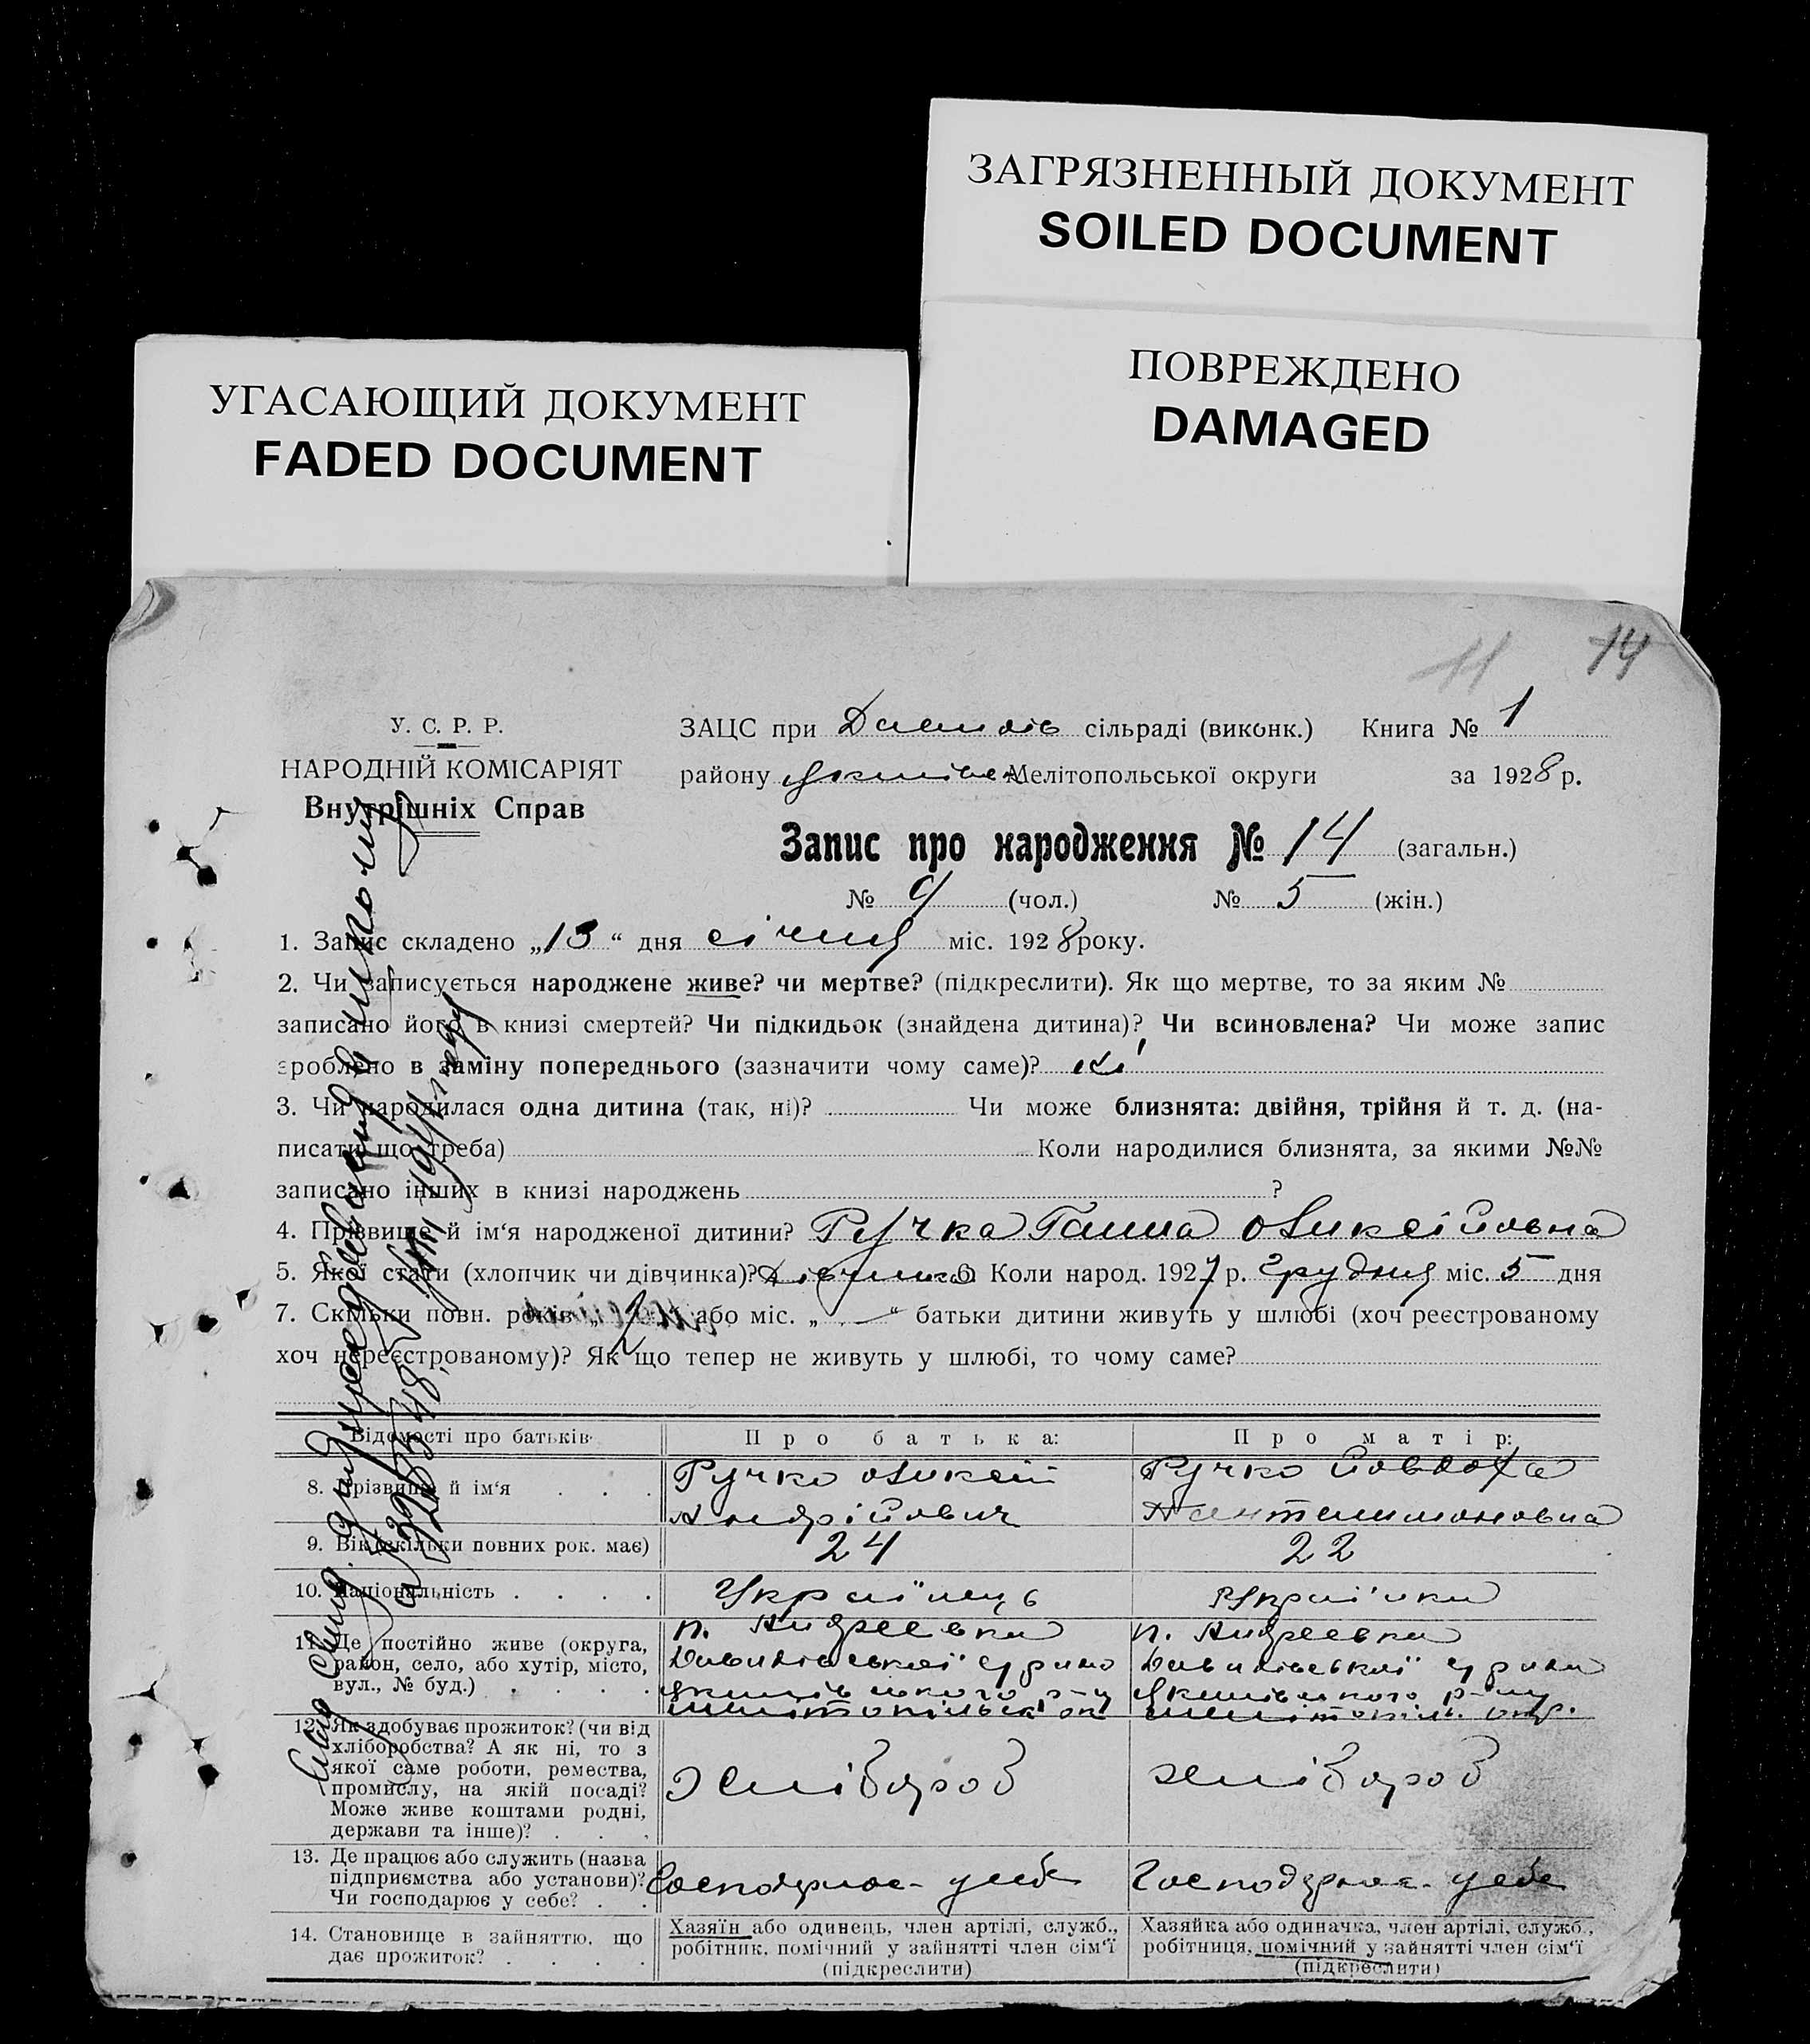 ЗАГРЯЗНЕННЫЙ ДОКУМЕНТ
SOILED DOCUMENT
ПОВРЕЖДЕНО
DAMAGED
УГАСАЮЩИЙ ДОКУМЕНТ
FADED DOCUMENT
11 14
У. С. Р. Р.
НАРОДНІЙ КОМІСАРІЯТ
Внутрішніх Справ
ЗАЦС при сільраді (виконк.) Книга № 1
району Мелітопольської округи за 1928 р.
Запис про народження № 14 (загальн.)
№ 9 (чол.) № 5 (жін.)
1. Запис складено „13“ дня січня міс. 1928 року.
2. Чи записується народжене живе? чи мертве? (підкреслити). Як що мертве, то за яким №
записано його в книзі смертей? Чи підкидьок (знайдена дитина)? Чи всиновлена? Чи може запис
зроблено в заміну попереднього (зазначити чому саме)? ні
3. Чи народилася одна дитина (так, ні)? Чи може близнята: двійня, трійня й т. д. (на-
писати що треба) Коли народилися близнята, за якими №№
записано інших в книзі народжень ?
4. Прізвище й ім‘я народженої дитини? Ручка Ганна Оликсійовна
5. Якої стати (хлопчик чи дівчинка)? Дівчинка 6. Коли народ. 1927 р. Грудня міс. 5 дня
7. Скільки повн. років „ 2 “ або міс. „ — “ батьки дитини живуть у шлюбі (хоч реєстрованому
хоч нереєстрованому)? Як що тепер не живуть у шлюбі, то чому саме?
Відомості про батьків Про батька: Про матір:
8. Прізвище й ім‘я . . . Ручко Оликсій Ручко Йовдоха
Андрійович Пантелимоновна
9. Вік (скільки повних рок. має) 24 22
10. Національність . . . . Українець Українка
11. Де постійно живе (округа, район, село, або хутір, місто, вул., № буд.) . . . .
п. Андреевка
Давидівської с/ради
Якимівського р-ну
п. Андреевка
Давидівської с/ради
Якимівського р-ну
12. Як здобуває прожиток? (чи від
хліборобства? А як ні, то з
якої саме роботи, ремества,
промислу, на якій посаді?
Може живе коштами родні,
держави та інше)? . . .
хлібороб хлібороб
13. Де працює або служить (назва
підприємства або установи)?
Чи господарює у себе? . .
Господарює у себе Господарює у себе
14. Становище в зайняттю, що
дає прожиток? . . . .
Хазяїн або одинець, член артілі, служб.,
робітник, помічний у зайнятті член сім‘ї
(підкреслити)
Хазяйка або одиначка, член артілі, служб.,
робітниця, помічний у зайнятті член сім‘ї
(підкреслити)